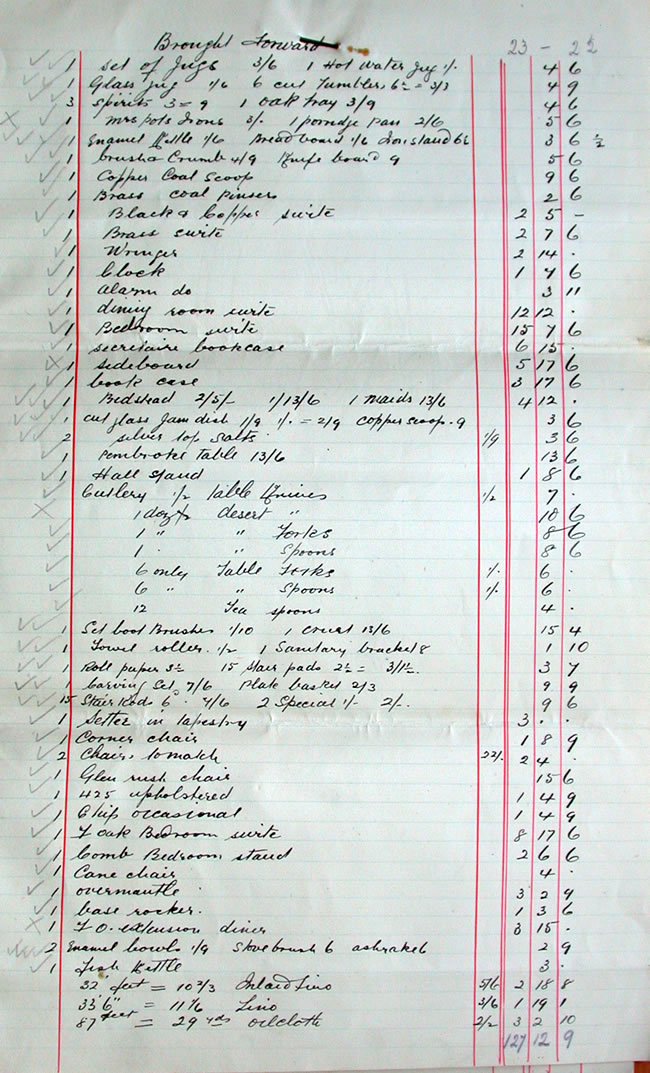 Brought Forward 23 - 2½
1 set of Jugs 3/6 1 Hot water Jug 1/- 4 6
1 Glass Jug 1/6 6 cut Tumblers 6½ = 3/3 4 9
3 Spirits 3 = 9 1 oak Tray 3/9 4 6
1 Mrs Pots Irons 3/- 1 porridge Pan 2/6 5 6
1 Enamel Kettle 1/6 Bread board 1/6 Iron stand 6½ 3 6 ½
1 brush & Crumb 4/9 Knife board 9 5 6
1 Copper Coal Scoop 9 6
1 Brass coal Pinsers 2 6
1 Black & Copper suite 2 5 -
1 Brass suite 2 7 6
1 Wringer 2 14 .
1 Clock 1 7 6
1 Alarm do 3 11
1 dining room suite 12 12 .
1 Bedroom suite 15 7 6
1 secretaire bookcase 6 15 .
1 sideboard 5 17 6
1 book case 3 17 6
1 Bedstead 2/5/- 1/13/6 1 maids 13/6 4 12 .
1 cut glass Jam dish 1/9 1/- = 2/9 copper scoop . 9 3 6
2 silver top salts 1/9 3 6
1 Pembroke Table 13/6 13 6
1 Hall stand 1 8 6
Cutlery ½ Table Knives 1/2 7 .
1 doz desert " 10 6
1 " " Forks 8 6
1 . " Spoons 8 6
6 only Table Forks 1/- 6 .
6 " " Spoons 1/- 6 .
12 Tea spoons 4 .
1 Set boot Brushes 1/10 1 cruet 13/6 15 4
1 Towel roller 1/2 1 Sanitary bracket 8 1 10
1 Roll paper 3½ 15 stair pads 2½ = 3/1½ . 3 7
1 Carving Set 7/6 Plate basket 2/3 9 9
15 Stair Rods 6 . 7/6 2 Special 1/- 2/- . 9 6
1 settee in tapestry 3 . .
1 Corner chair 1 8 9
2 Chairs to match 22/- 2 4 .
1 Glen rush chair 15 6
1 425 upholstered 1 4 9
1 Chip occasional 1 4 9
1 F oak Bedroom suite 8 17 6
1 Comb Bedroom stand 2 6 6
1 Cane chair 4 .
1 overmantle 3 2 9
1 base rocker . 1 3 6
1 F O. extension diner 3 15 .
2 Enamel bowls 1/9 Stove brush 6 ashrake 6 2 9
1 Fish Kettle 3 .
32 feet = 10 2/3 Inlaid Lino 5/6 2 18 8
33'6" = 11 1/6 Lino 3/6 1 19 1
87 feet = 29 yds oilcloth 2/2 3 2 10
127 12 9